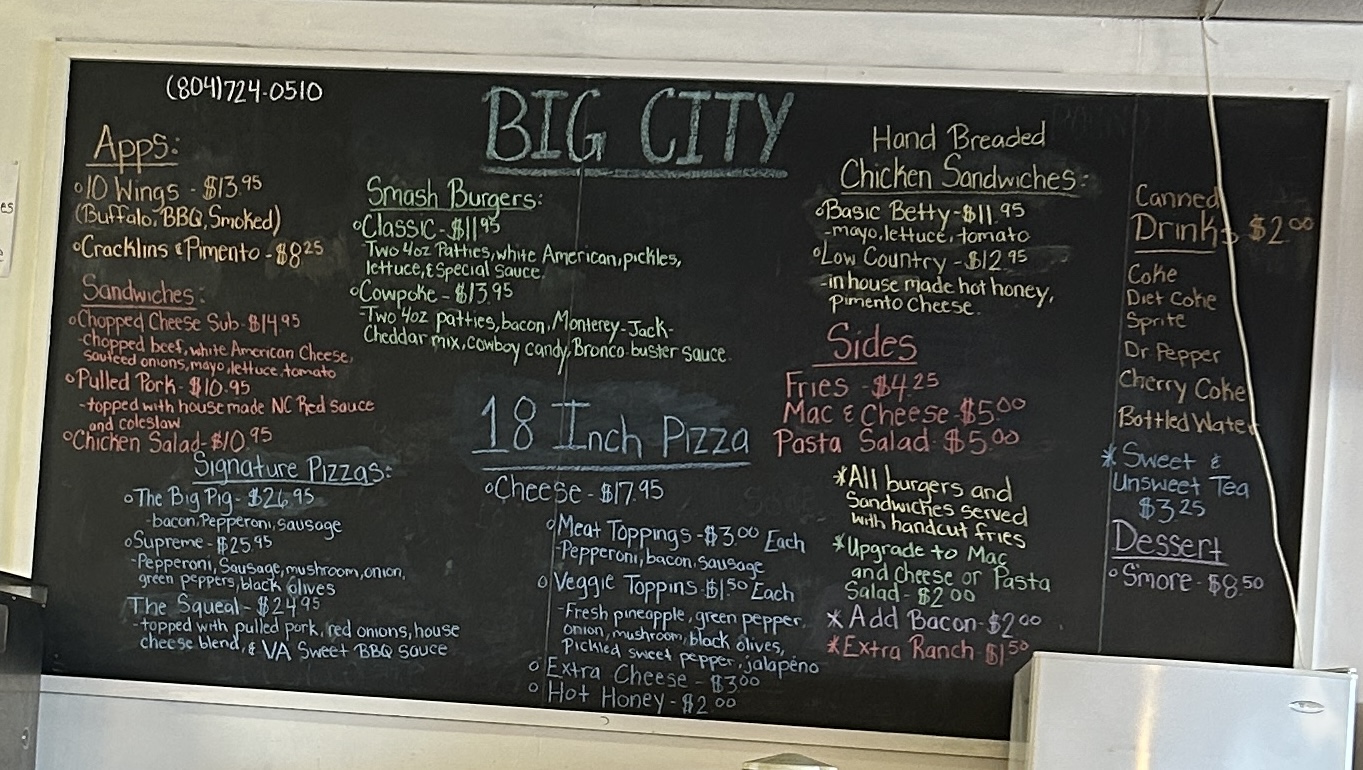 (804)724-0510
BIG CITY
Apps:
10 Wings - $13.95
(Buffalo, BBQ, Smoked)
Cracklins & Pimento - $8.25
Sandwiches:
Chopped Cheese Sub - $14.95
-Chopped beef, white American Cheese,
sauteed onions, mayo, lettuce, tomato
Pulled Pork - $10.95
-topped with house made NC Red sauce
and coleslaw
Chicken Salad - $10.95
Signature Pizzas:
The Big Pig - $26.95
-bacon, Pepperoni, sausage
Supreme - $25.95
-Pepperoni, Sausage, mushroom, onion,
green peppers, black olives
The Squeal - $24.95
-topped with pulled pork, red onions, house
cheese blend, & VA Sweet BBQ Sauce
Smash Burgers:
Classic - $11.95
Two 4oz Patties, white American, pickles,
lettuce, & Special Sauce.
Cowpoke - $13.95
-Two 4oz patties, bacon, Monterey-Jack-
Cheddar mix, cowboy candy, Bronco-buster sauce.
18 Inch Pizza
Cheese - $17.95
Meat Toppings - $3.00 Each
-Pepperoni, bacon, sausage
Veggie Toppins - $1.50 Each
-Fresh pineapple, green pepper,
onion, mushroom, black olives,
Pickled sweet pepper, jalapeño
Extra Cheese - $3.00
Hot Honey - $2.00
Hand Breaded
Chicken Sandwiches:
Basic Betty - $11.95
-mayo, lettuce, tomato
Low Country - $12.95
-in house made hot honey,
pimento cheese.
Sides
Fries - $4.25
Mac & Cheese - $5.00
Pasta Salad - $5.00
*All burgers and
Sandwiches served
with handcut fries
*Upgrade to Mac
and Cheese or Pasta
Salad - $2.00
*Add Bacon - $2.00
*Extra Ranch $1.50
Canned
Drinks $2.00
Coke
Diet Coke
Sprite
Dr. Pepper
Cherry Coke
Bottled Water
*Sweet &
Unsweet Tea
$3.25
Dessert
S'more - $8.50